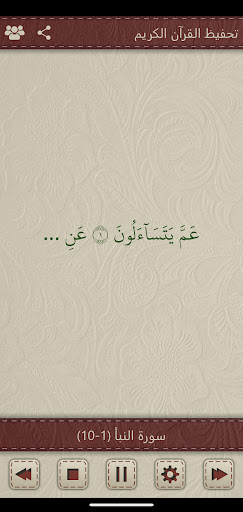 تحفيظ القرآن الكريم
عَمَّ يَتَسَآءَلُونَ ۝١ عَنِ ...
سورة النبأ (1-10)